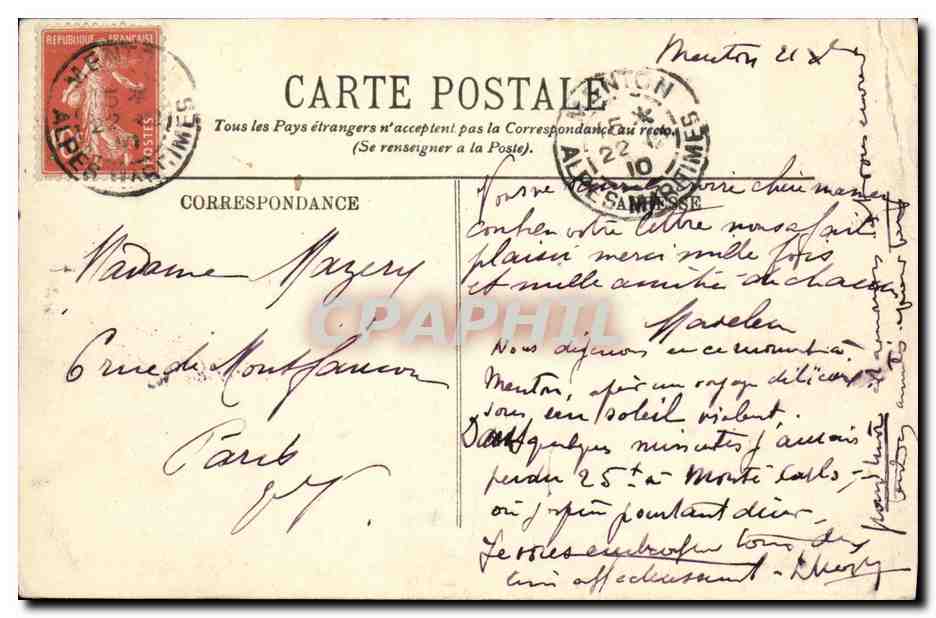 RÉPUBLIQUE FRANÇAISE
POSTES
MENTON
22
10
ALPES-MARITIMES
CARTE POSTALE
Tous les Pays étrangers n'acceptent pas la Correspondance au recto.
(Se renseigner à la Poste).
CORRESPONDANCE
Madame Mazery
6 rue de Montfaucon
Paris
CPAPHIL
Menton 21
MENTON
22
10
ALPES-MARITIMES
chère maman
combien votre lettre nous a fait
plaisir merci mille fois
et mille amitiés de chacun
Nous déjeunons en ce moment à
Menton, après un voyage délicieux
sous un soleil violent.
Dans quelques minutes j'aurais
perdu 25 f à Monte Carlo,
où j'espère pourtant dîner,
Je vous embrasse tous deux
bien affectueusement